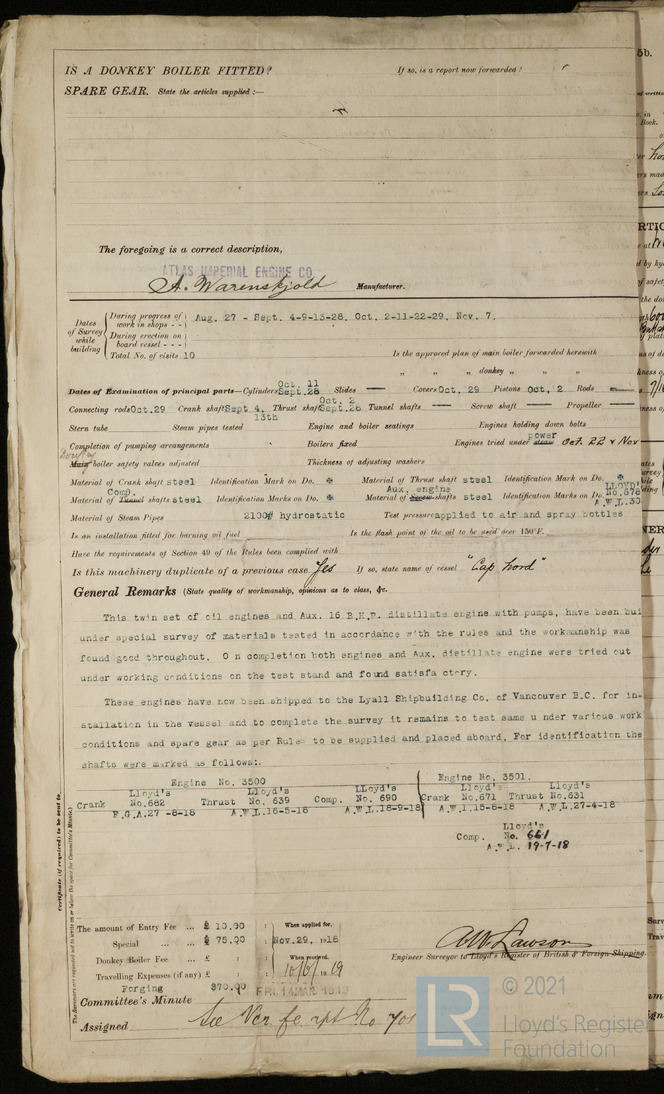 IS A DONKEY BOILER FITTED? If so, is a report now forwarded?
SPARE GEAR. State the articles supplied:—
The foregoing is a correct description,
ATLAS IMPERIAL ENGINE CO.
A. Warenskjold Manufacturer.
Dates of Survey while building
During progress of work in shops - - Aug. 27 - Sept. 4-9-13-28. Oct. 2-11-22-29. Nov. 7.
During erection on board vessel - - -
Total No. of visits 10 Is the approved plan of main boiler forwarded herewith
" " donkey " " "
Oct. 11
Dates of Examination of principal parts—Cylinders Sept.28 Slides — Covers Oct. 29 Pistons Oct. 2 Rods —
Oct. 2
Connecting rods Oct.29 Crank shaft Sept 4. Thrust shaft Sept.28 Tunnel shafts — Screw shaft — Propeller —
13th
Stern tube Steam pipes tested Engine and boiler seatings Engines holding down bolts
power
Completion of pumping arrangements Boilers fixed Engines tried under steam Oct. 22 & Nov
Donkey
Main boiler safety valves adjusted Thickness of adjusting washers
Material of Crank shaft steel Identification Mark on Do. Material of Thrust shaft steel Identification Mark on Do.
Comp. Aux. engine LLOYD'
Material of Tunnel shafts steel Identification Marks on Do. Material of Screw shafts steel Identification Marks on Do. No.678
A.W.L.30
Material of Steam Pipes 2100# hydrostatic Test pressure applied to air and spray bottles
Is an installation fitted for burning oil fuel Is the flash point of the oil to be used over 150°F.
Have the requirements of Section 49 of the Rules been complied with
Is this machinery duplicate of a previous case Yes If so, state name of vessel "Cap Nord"
General Remarks (State quality of workmanship, opinions as to class, &c.
This twin set of oil engines and Aux. 16 B.H.P. distillate engine with pumps, have been bui
under special survey of materials tested in accordance with the rules and the workmanship was
found good throughout. O n completion both engines and Aux. distillate engine were tried out
under working conditions on the test stand and found satisfa ctory.
These engines have now been shipped to the Lyall Shipbuilding Co. of Vancouver B.C. for in-
stallation in the vessel and to complete the survey it remains to test same u nder various work
conditions and spare gear as per Rules to be supplied and placed aboard. For identification the
shafts were marked as follows:.
Engine No. 3500 Engine No. 3501.
Lloyd's Lloyd's Lloyd's Lloyd's Lloyd's
Crank No.682 Thrust No. 639 Comp. No. 690 Crank No.671 Thrust No.631
F.G.A.27 -8-18 A.W.L.16-5-18 A.W.L.18-9-18 A.W.L.15-8-18 A.W.L.27-4-18
Lloyd's
Comp. No. 661
A.W.L. 19-7-18
The amount of Entry Fee ... $ 10.00 : When applied for,
Special ... ... $ 75.00 : Nov.29, 1918
Donkey Boiler Fee ... £ : : When received,
Travelling Expenses (if any) £ : : 10/6/1919
Forging $70.00
A.W. Lawson
Engineer Surveyor to Lloyd's Register of British & Foreign Shipping.
Committee's Minute FRI. 14 MAR 1919
Assigned See Vcr. f.e. rpt No 701
Certificate (if required) to be sent to
The Surveyors are requested not to write on or below the space for Committee's Minute.
© 2021
LR
Lloyd's Register
Foundation